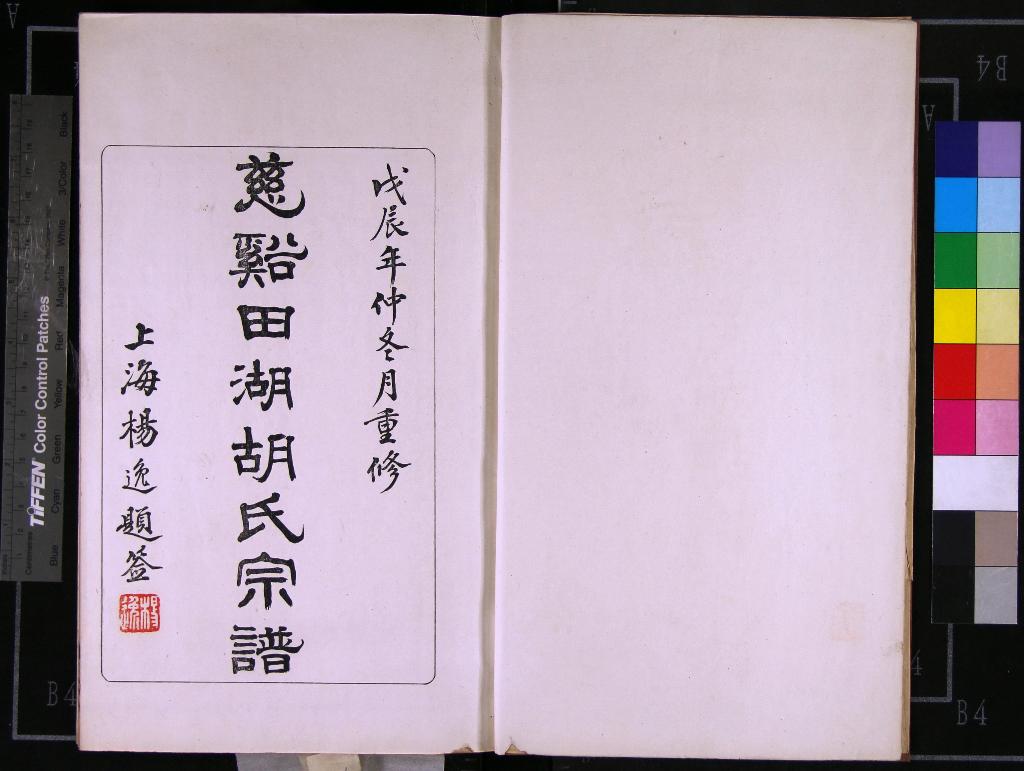 戊辰年仲冬月重修
慈谿田湖胡氏宗譜
上海楊逸題簽
楊逸
TIFFEN Color Control Patches
Blue
Cyan
Green
Yellow
Red
Magenta
White
3/Color
Black
Centimetres
Inches
A
B4
A
B4
B4